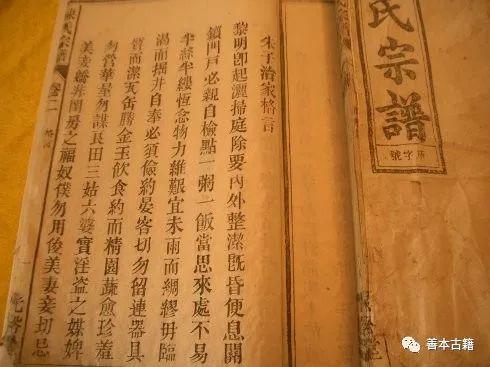 氏宗譜
字號
朱子治家格言
黎明卽起灑掃庭除要內外整潔旣昏便息關
鎖門戶必親自檢點一粥一飯當思來處不易
半絲半縷恆念物力維艱宜未雨而綢繆毋臨
渴而掘井自奉必須儉約宴客切勿留連器具
質而潔瓦缶勝金玉飲食約而精園蔬愈珍羞
勿營華屋勿謀良田三姑六婆實淫盜之媒婢
美妾嬌非閨房之福奴僕勿用俊美妻妾切忌
氏宗譜 卷二
善本古籍